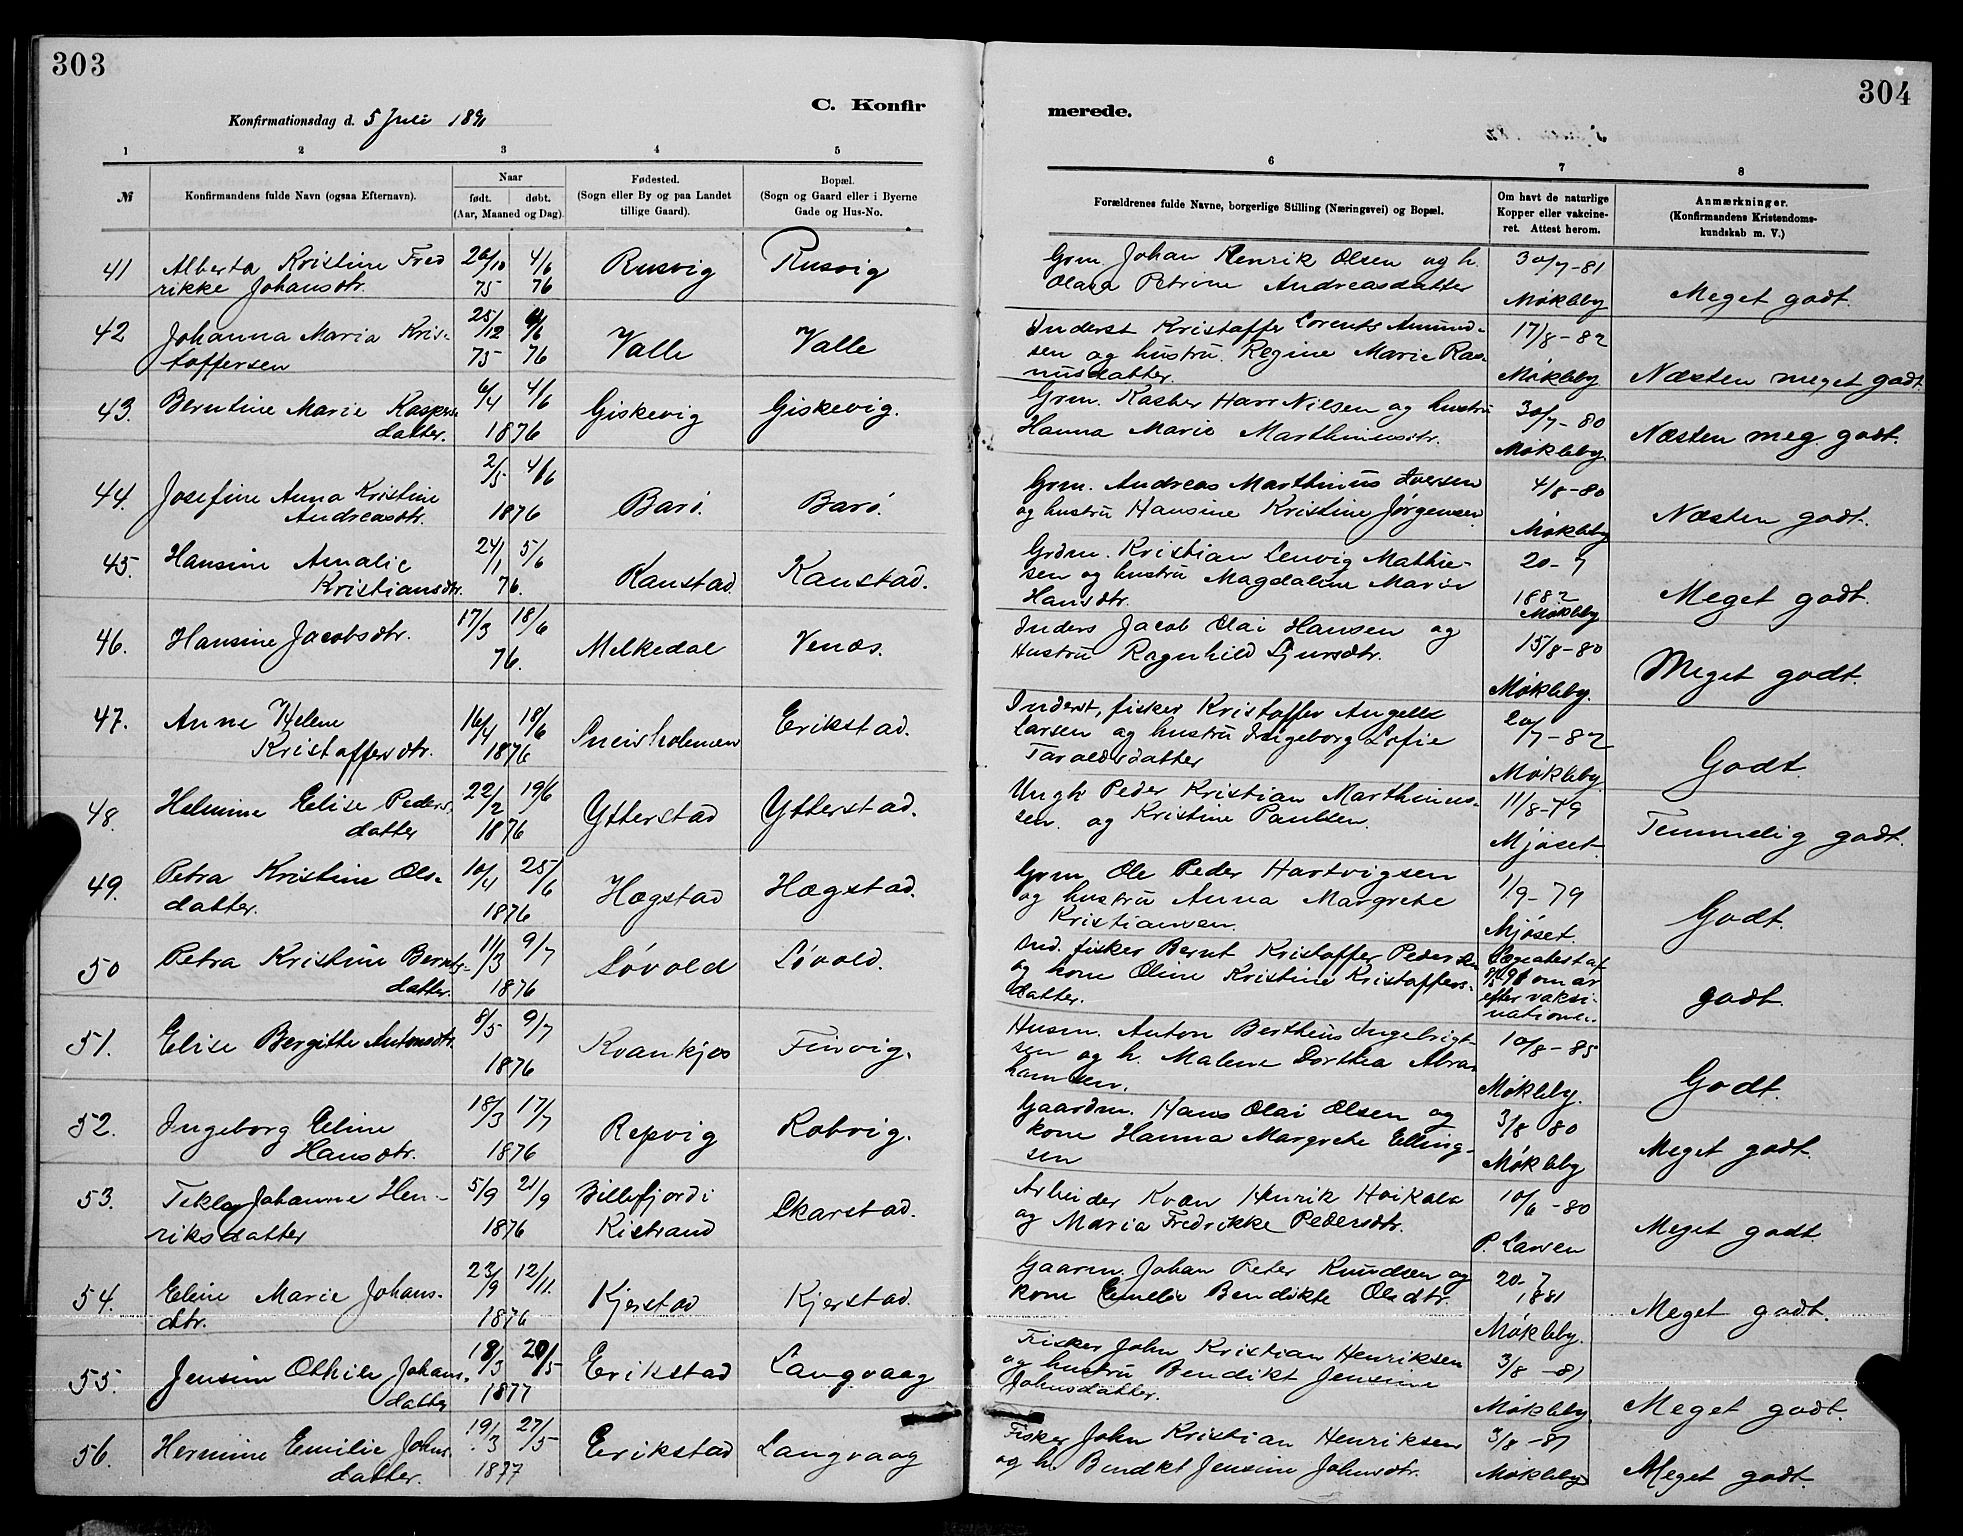 303
304
C. Konfir
merede.
Konfirmationsdag d. 5 Juli 1891
1 2 3 4 5 6 7 8
№
Konfirmandens fulde Navn (ogsaa Efternavn).
Naar
født. døbt.
(Aar, Maaned og Dag).
Fødested.
(Sogn eller By og paa Landet
tillige Gaard).
Bopæl.
(Sogn og Gaard eller i Byerne
Gade og Hus-No.
Forældrenes fulde Navne, borgerlige Stilling (Næringsvei) og Bopæl.
Om havt de naturlige
Kopper eller vakcine-
ret. Attest herom.
Anmærkninger.
(Konfirmandens Kristendoms-
kundskab m. V.)
41 Alberta Kristine Fred
rikke Johansdtr.
26/10 4/6
75 76
Rusvig
Rusvig
Grm. Johan Henrik Olsen og h.
Olava Petrine Andreasdatter
30/7-81
Møkleby
Meget godt.
42 Johanna Maria Kris-
toffersen
25/12 4/6
75 76
Valle
Valle
Inderst Kristoffer Lorents Amund-
sen og hustru Regine Marie Ras-
musdatter.
17/8-82
Møkleby
Næsten meget godt.
43. Berntine Marie Kaspers
datter.
6/4 4/6
1876
Giskevig
Giskevig.
Grm. Kasber Harr Nilsen og hustru
Hanna Marie Marthinusdtr.
30/7-80
Møkleby
Næsten meg. godt.
44. Josefine Anna Kristine
Andreasdtr.
2/5 4/6
1876
Barø.
Barø.
Grm. Andreas Marthinus Iversen
og hustru Hansine Kristine Jørgensen
4/8-80
Møkleby
Næsten godt.
45. Hansine Amalie
Kristiansdtr.
24/1 5/6
76.
Kanstad
Kanstad.
Grdm. Kristian Lenvig Mathie-
sen og hustru Magdaline Marie
Hansdtr.
20-7
1882
Møkleby
Meget godt.
46. Hansine Jacobsdtr.
17/3 18/6
76.
Melkedal
Venæs.
Inders Jacob Olai Hansen og
Hustru Ragnhild Sjursdtr.
15/8-80
Møkleby.
Meget godt.
47. Anne Helene
Kristoffersdtr.
16/4 18/6
1876
Erikstad.
Inderst, fisker Kristoffer Angell
Larsen og hustru Ingeborg Sofie
Taraldsdatter
20/7-82
Møkleby.
Godt
48. Helmine Elise Peders
datter
22/2 19/6
1876
Ytterstad
Ytterstad.
Ungk Peder Kristian Marthinus-
sen. og Kristine Paulsen.
11/8-79
Mjøset.
Temmelig godt.
49. Petra Kristine Ols-
datter.
10/4 25/6
1876
Hægstad
Hægstad.
Grm. Ole Peder Hartvigsen
og hustru Anna Margrete
Kristiansen.
1/9-79
Mjøset.
Godt.
50 Petra Kristine Bernts-
datter.
11/3 9/7
1876
Løvold
Løvold.
Ind. fisker Bernt Kristoffer Pedersen
og kone Oline Kristine Kristoffers-
datter.
Lægeatest af
om ar
efter vaksi-
nationen.
godt.
51. Elise Bergitte Antonsdtr.
8/5 9/7
1876
Kvankjos
Finvig.
Husm. Anton Bertheus Ingebrigt-
sen og h. Malene Dorthea Abra-
hamsen.
10/8-85
Møkleby.
Godt.
52. Ingeborg Eline
Hansdtr.
18/3 17/7
1876
Repvig
Robvig.
Gaardm. Hans Olai Olsen og
kone Hanna Margrete Elling-
sen
3/8 80
Møkleby
Meget godt.
53. Tekla Johanne Hen-
riksdatter
5/9 21/9
1876
Billefjord i
Kistrand
Skarstad.
Arbeider Kvæn Henrik Hoikala
og Maria Fredrikke Pedersdtr.
10/6-80
P. Larsen
Meget godt.
54. Eline Marie Johans-
dtr.
23/9 12/11.
1876
Kjerstad
Kjerstad.
Gaarm. Johan Peter Knudsen og
kone Emelie Bendikte Olsdtr.
20-7
1881
Møkleby.
Meget godt.
55. Jensine Othilie Johans-
datter
18/3 20/5
1877
Erikstad
Langvaag
Fisker John Kristian Henriksen
og hustru Bendikt Jensine
Johnsdatter.
3/8-81
Møkleby.
Meget godt.
56. Hermine Emilie Johns-
datter.
19/3 27/5
1877
Erikstad
Langvaag
Fisker John Kristian Henriksen
og h. Bendikt Jensine Johnsdtr.
3/8-81
Møkleby
Meget godt.